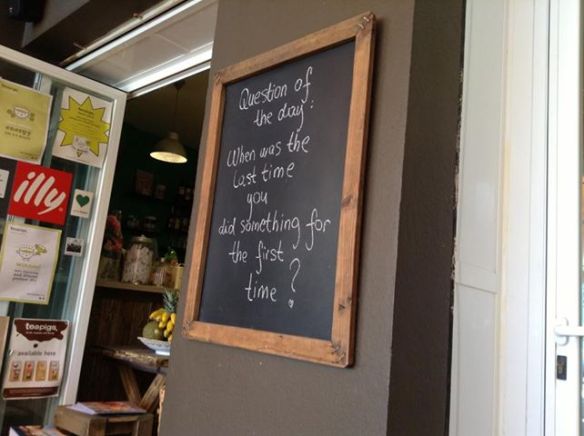 Question of
the day:
When was the
last time
you
did something for
the first
time?
illy
teapigs.
available here